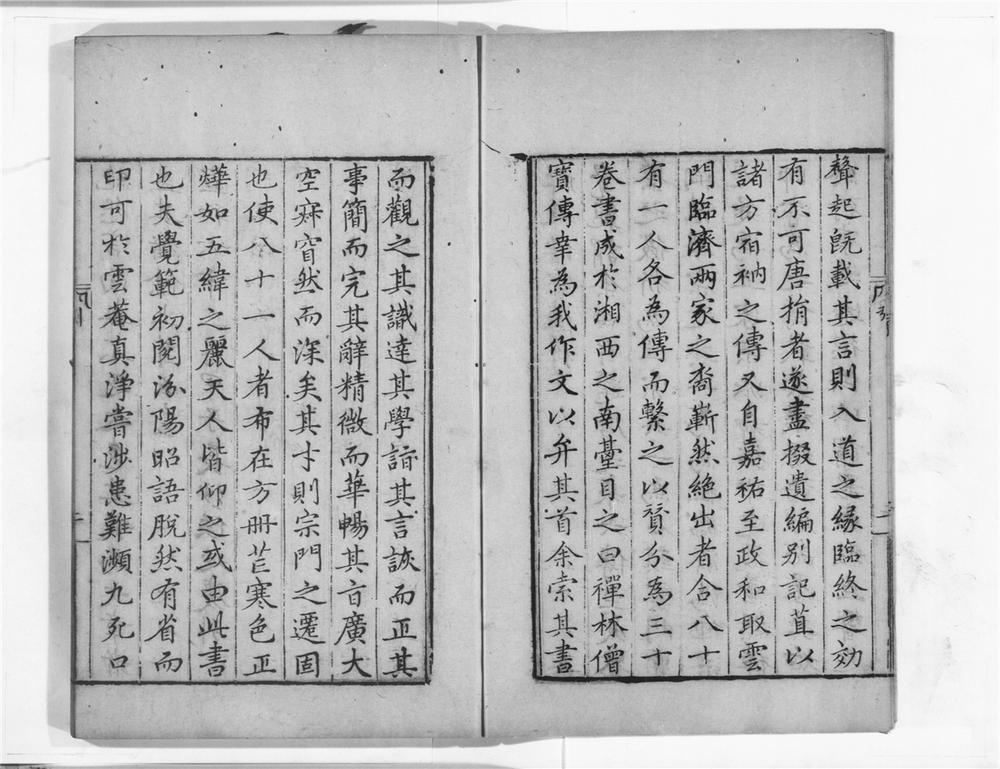 聲起旣載其言則入道之緣臨終之効
有不可唐捐者遂盡掇遺編别記苴以
諸方宿衲之傳又自嘉祐至政和取雲
門臨濟兩家之裔嶄然絶出者合八十
有一人各為傳而繫之以賛分為三十
卷書成於湘西之南臺目之曰禪林僧
寳傳幸為我作文以弁其首余索其書
而觀之其識達其學詣其言詼而正其
事簡而完其辭精微而華暢其㫖廣大
空寂窅然而深矣其才則宗門之遷固
也使八十一人者布在方冊芒寒色正
燁如五緯之麗天人皆仰之或由此書
也夫覺範初閲汾陽昭語脫然有省而
印可於雲菴真淨嘗涉患難瀕九死口